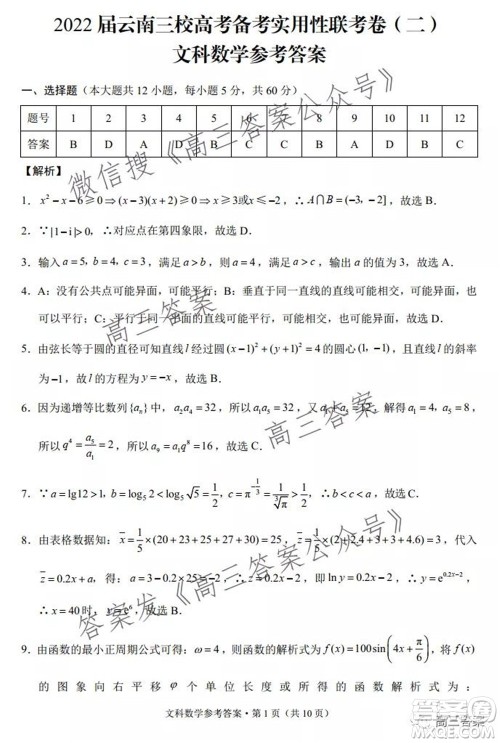 2022 届云南三校高考备考实用性联考卷（二）
文科数学参考答案
一、选择题（本大题共 12 小题，每小题 5 分，共 60 分）
题号 1 2 3 4 5 6 7 8 9 10 11 12
答案 B D A D D
【解析】
1. x²－x－6≥0⇒(x－3)(x＋2)≥0⇒x≥3或x≤－2，∴A∩B=(－3，－2]，故选 B．
2. ∵|1－i|>0，∴对应点在第四象限，故选 D．
3. 输入 a=5，b=4，c=3，满足 a>b，则 a=4，满足 a>c，输出 a 的值为 3，故选 A．
4. A：没有公共点可能异面，可能平行；B：垂直于同一直线的两直线可能异面，可能相交，也
可以平行；C：平行于同一平面的两直线可能异面，可能相交，也可以平行，故选 D．
5. 由弦长等于圆的直径可知直线 l 经过圆 (x－1)²＋(y＋1)²=4 的圆心 (1，－1)，且直线 l 的斜率
为－1，故 l 的方程为 y=－x，故选 B．
6. 因为递增等比数列{aₙ}中，a₂a₄=32，所以 a₁a₅=32，又 a₁＋a₅=12，解得 a₁=4，a₅=8，
所以 q⁴=a₅/a₁=2，所以 a₉=a₁q⁸=16，故选 B．
7. ∵a=lg12>1，b=log₅2<log₅√5=1/2，c=π^(－1/3)=1/∛π>1/2，∴b<c<a，故选 C．
8. 由表格数据知：x̄=1/5×(20+23+25+27+30)=25，z̄=1/5×(2+2.4+3+3+4.6)=3，代入
z̄=0.2x̄+a，得：a=3－0.2×25=－2，∴z=0.2x－2，即 ln y=0.2x－2，∴y=e^(0.2x－2)，
∴x=40 时，y=e⁶，故选 B．
9. 由函数的最小正周期公式可得：ω=4，则函数的解析式为 f(x)=100sin(4x+π/6)，将 f(x)
的图象向右平移 φ 个单位长度或所得的函数解析式为
文科数学参考答案·第 1 页（共 10 页）
微信搜《高三答案公众号》
高三答案
高三答案
答案发布《高三答案公众号》
高三答案